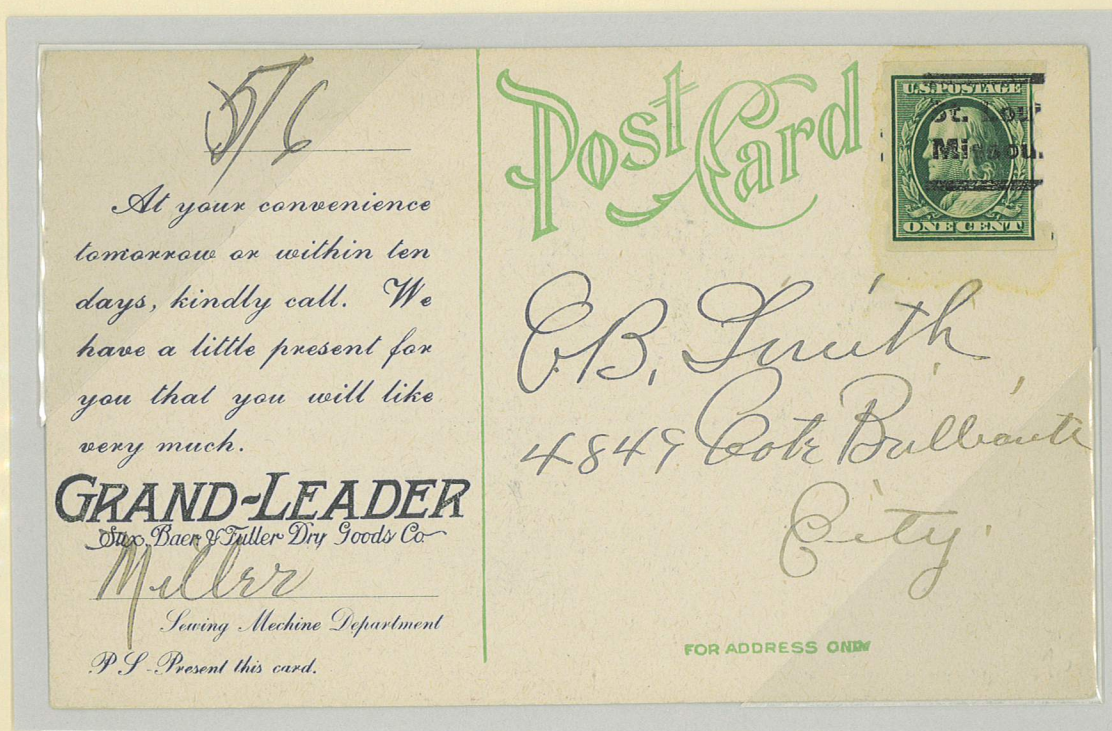 5/6
At your convenience
tomorrow or within ten
days, kindly call. We
have a little present for
you that you will like
very much.
GRAND-LEADER
Stix, Baer & Fuller Dry Goods Co
Miller
Sewing Mechine Department
P S - Present this card.
Post Card
U.S. POSTAGE
St. Loui
Missou
ONE CENT
C.B. Smith
4849 Cote Brilliante
City.
FOR ADDRESS ONLY